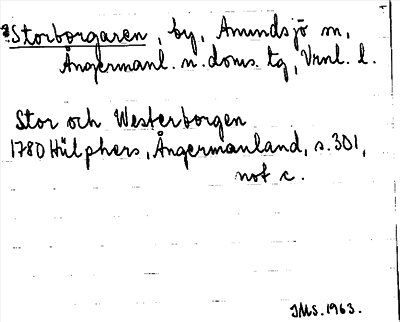 Storborgaren, by, Amundsjö m,
Ångermanl. n. doms. tg, Vrnl. l.
Stor och Westerborgen
1780 Hülphers, Ångermanland, s. 301,
not c.
JMS. 1963.